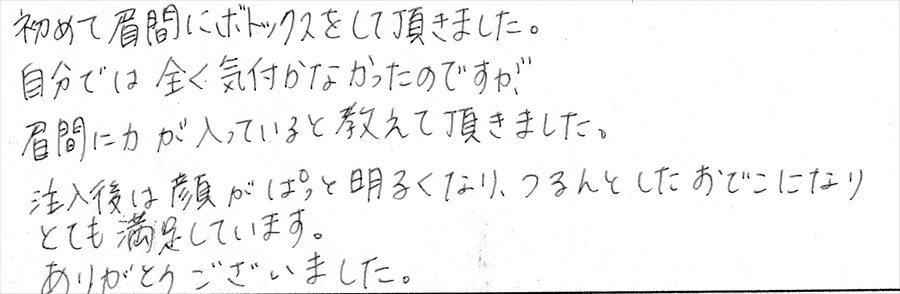 初めて眉間にボトックスをして頂きました。
自分では全く気付かなかったのですが、
眉間に力が入っていると教えて頂きました。
注入後は顔がぱっと明るくなり、つるんとしたおでこになり
とても満足しています。
ありがとうございました。